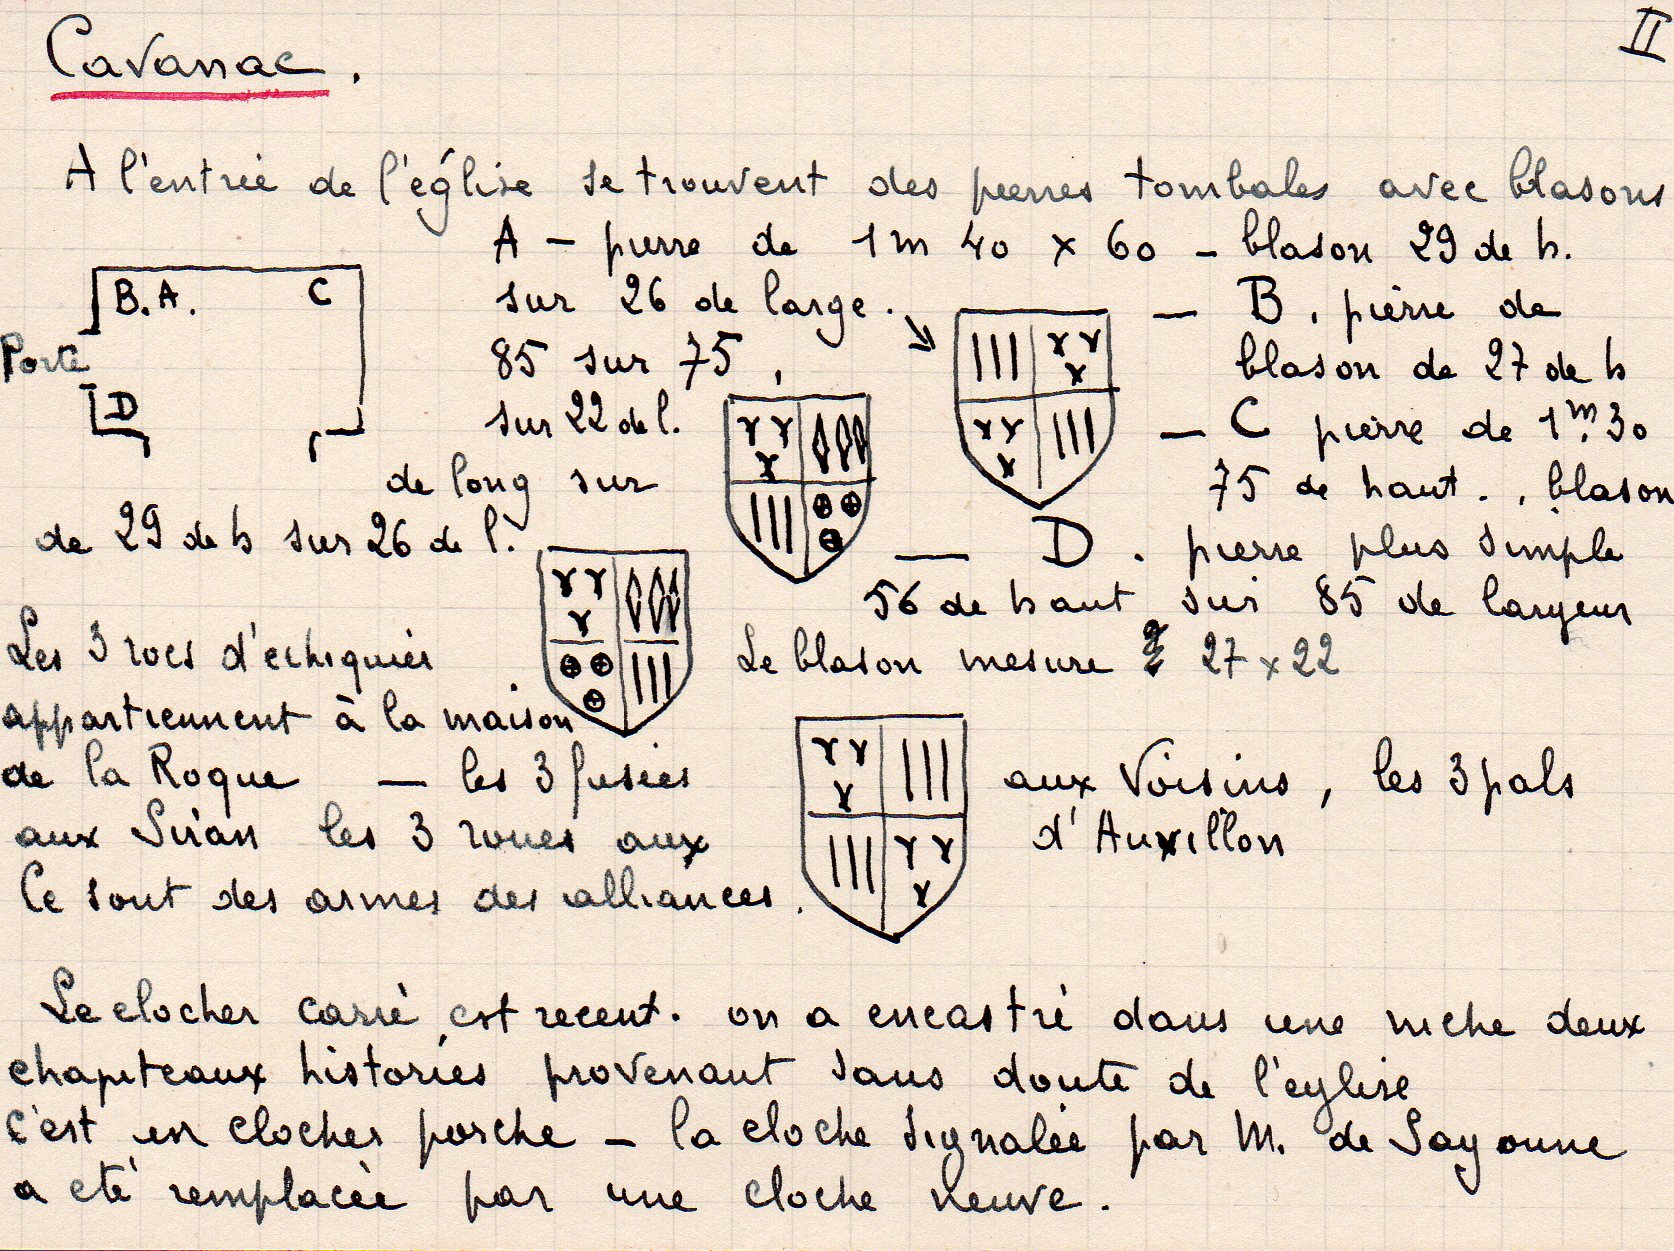 II
Cavanac.
A l'entrée de l'église se trouvent des pierres tombales avec blasons
A – pierre de 1m 40 x 60 – blason 29 de h.
sur 26 de large. — B. pierre de
85 sur 75, blason de 27 de h
sur 22 de l. — C pierre de 1m.30
de long sur 75 de haut., blason
de 29 de h sur 26 de l. — D. pierre plus simple
56 de haut sur 85 de largeur
Le blason mesure 27 x 22
B. A. C
Porte
D
Les 3 rocs d'echiquier
appartiennent à la maison
de la Roque — les 3 fusées aux Voisins, les 3 pals
aux Siran les 3 roues aux d'Auxillon
Ce sont des armes des alliances.
Le clocher carré est recent. on a encastré dans une niche deux
chapiteaux historiés provenant sans doute de l'eglise
c'est un clocher porche – la cloche signalée par M. de
a eté remplacée par une cloche neuve.